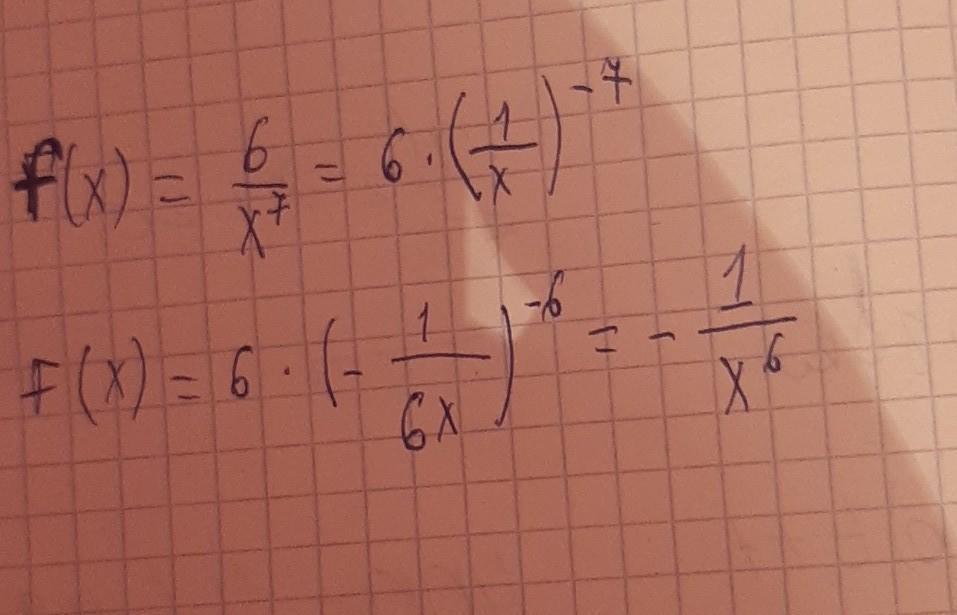 f(x) = 6/x⁷ = 6 · (1/x)⁻⁷
F(x) = 6 · (- 1/6x)⁻⁶ = - 1/x⁶